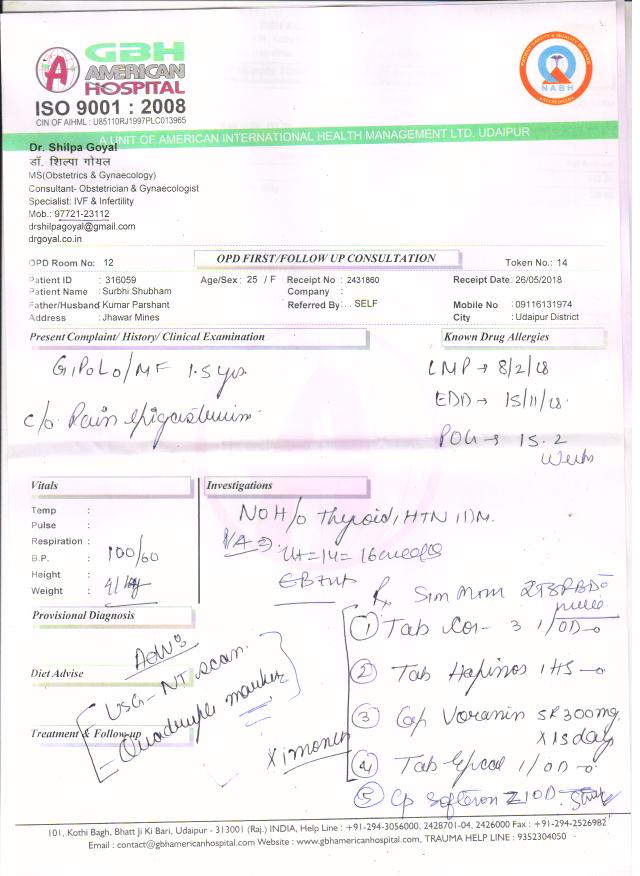 GBH
AMERICAN
HOSPITAL
ISO 9001 : 2008
CIN OF AIHML : U85110RJ1997PLC013965
PATIENT SAFETY & QUALITY OF CARE
NABH
ACCREDITED
A UNIT OF AMERICAN INTERNATIONAL HEALTH MANAGEMENT LTD. UDAIPUR
Dr. Shilpa Goyal
डॉ. शिल्पा गोयल
MS(Obstetrics & Gynaecology)
Consultant- Obstetrician & Gynaecologist
Specialist: IVF & Infertility
Mob.: 97721-23112
drshilpagoyal@gmail.com
drgoyal.co.in
OPD Room No: 12 OPD FIRST/FOLLOW UP CONSULTATION Token No.: 14
Patient ID : 316059 Age/Sex : 25 / F Receipt No : 2431860 Receipt Date : 26/05/2018
Patient Name : Surbhi Shubham Company :
Father/Husband Kumar Parshant Referred By: . . SELF Mobile No : 09116131974
Address : Jhawar Mines City : Udaipur District
Present Complaint/ History/ Clinical Examination Known Drug Allergies
G1P0L0/MF 1.5 yrs LMP → 8/2/18
EDD → 15/11/18
c/o Pain epigastrium
POG → 15.2
Weeks
Vitals Investigations
Temp :
Pulse :
Respiration :
B.P. : 100/60
Height :
Weight :
NO H/o Thyroid, HTN
P/A ⇒ Ut = 14 = 16 weeks
Provisional Diagnosis
Adv
Diet Advise
USG - NT scan
- Quadruple marker
Treatment & Follow-up
x 1 month
Rx
① Tab Cor-3 1/OD
② Tab 1 HS
③ Cap SR 300mg
x 15 days
④ Tab 1/OD
⑤ Cp Softeron Z 1 OD
101, Kothi Bagh, Bhatt Ji Ki Bari, Udaipur - 313001 (Raj.) INDIA, Help Line : +91-294-3056000, 2428701-04, 2426000 Fax : +91-294-2526982
Email : contact@gbhamericanhospital.com Website : www.gbhamericanhospital.com, TRAUMA HELP LINE : 9352304050